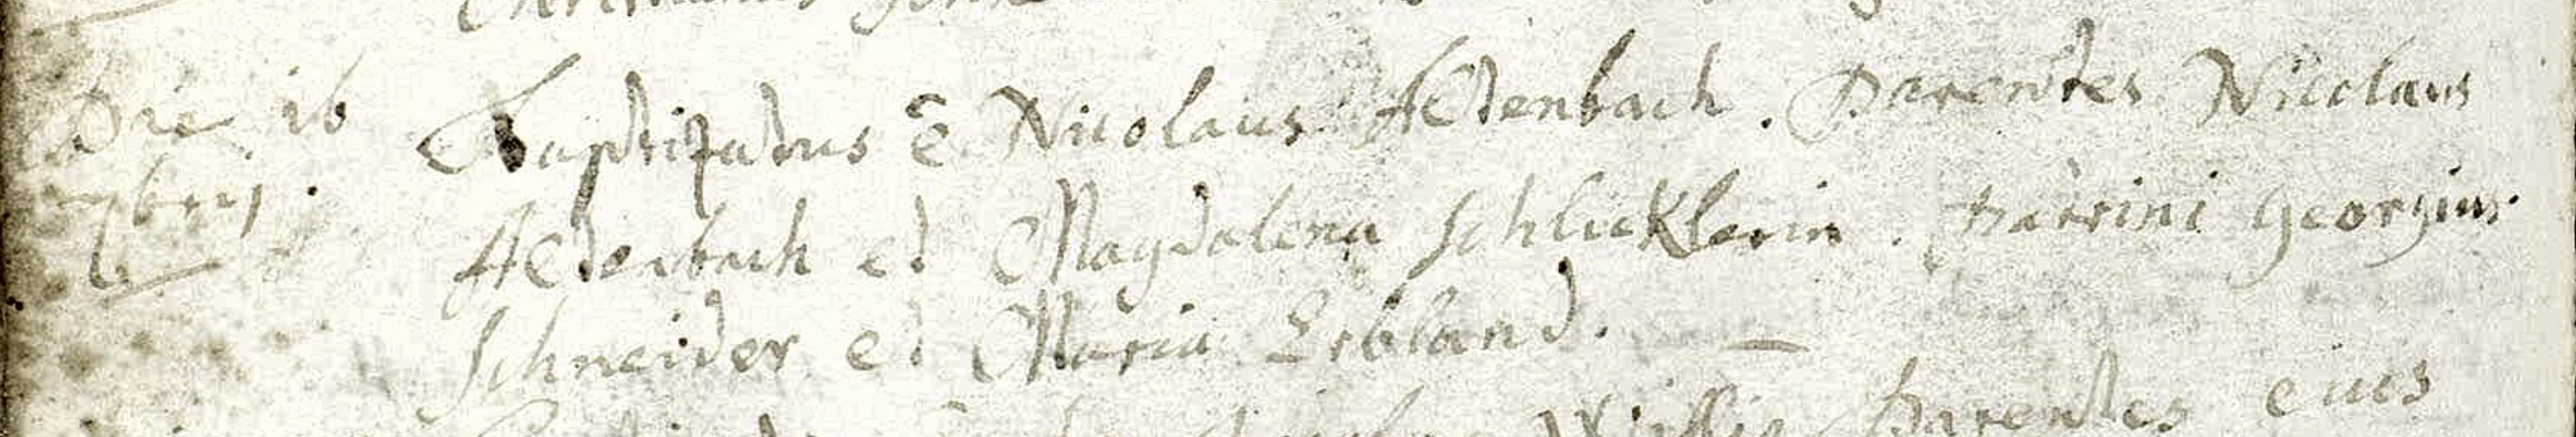 Die 16 Baptizatus ē Nicolaus Aldenbach. Parentes Nicolaus
7bris. Aldenbach et Magdalena Schlicklerin. Patrini Georgius
Schneider et Maria Erbland.
Parentes eius